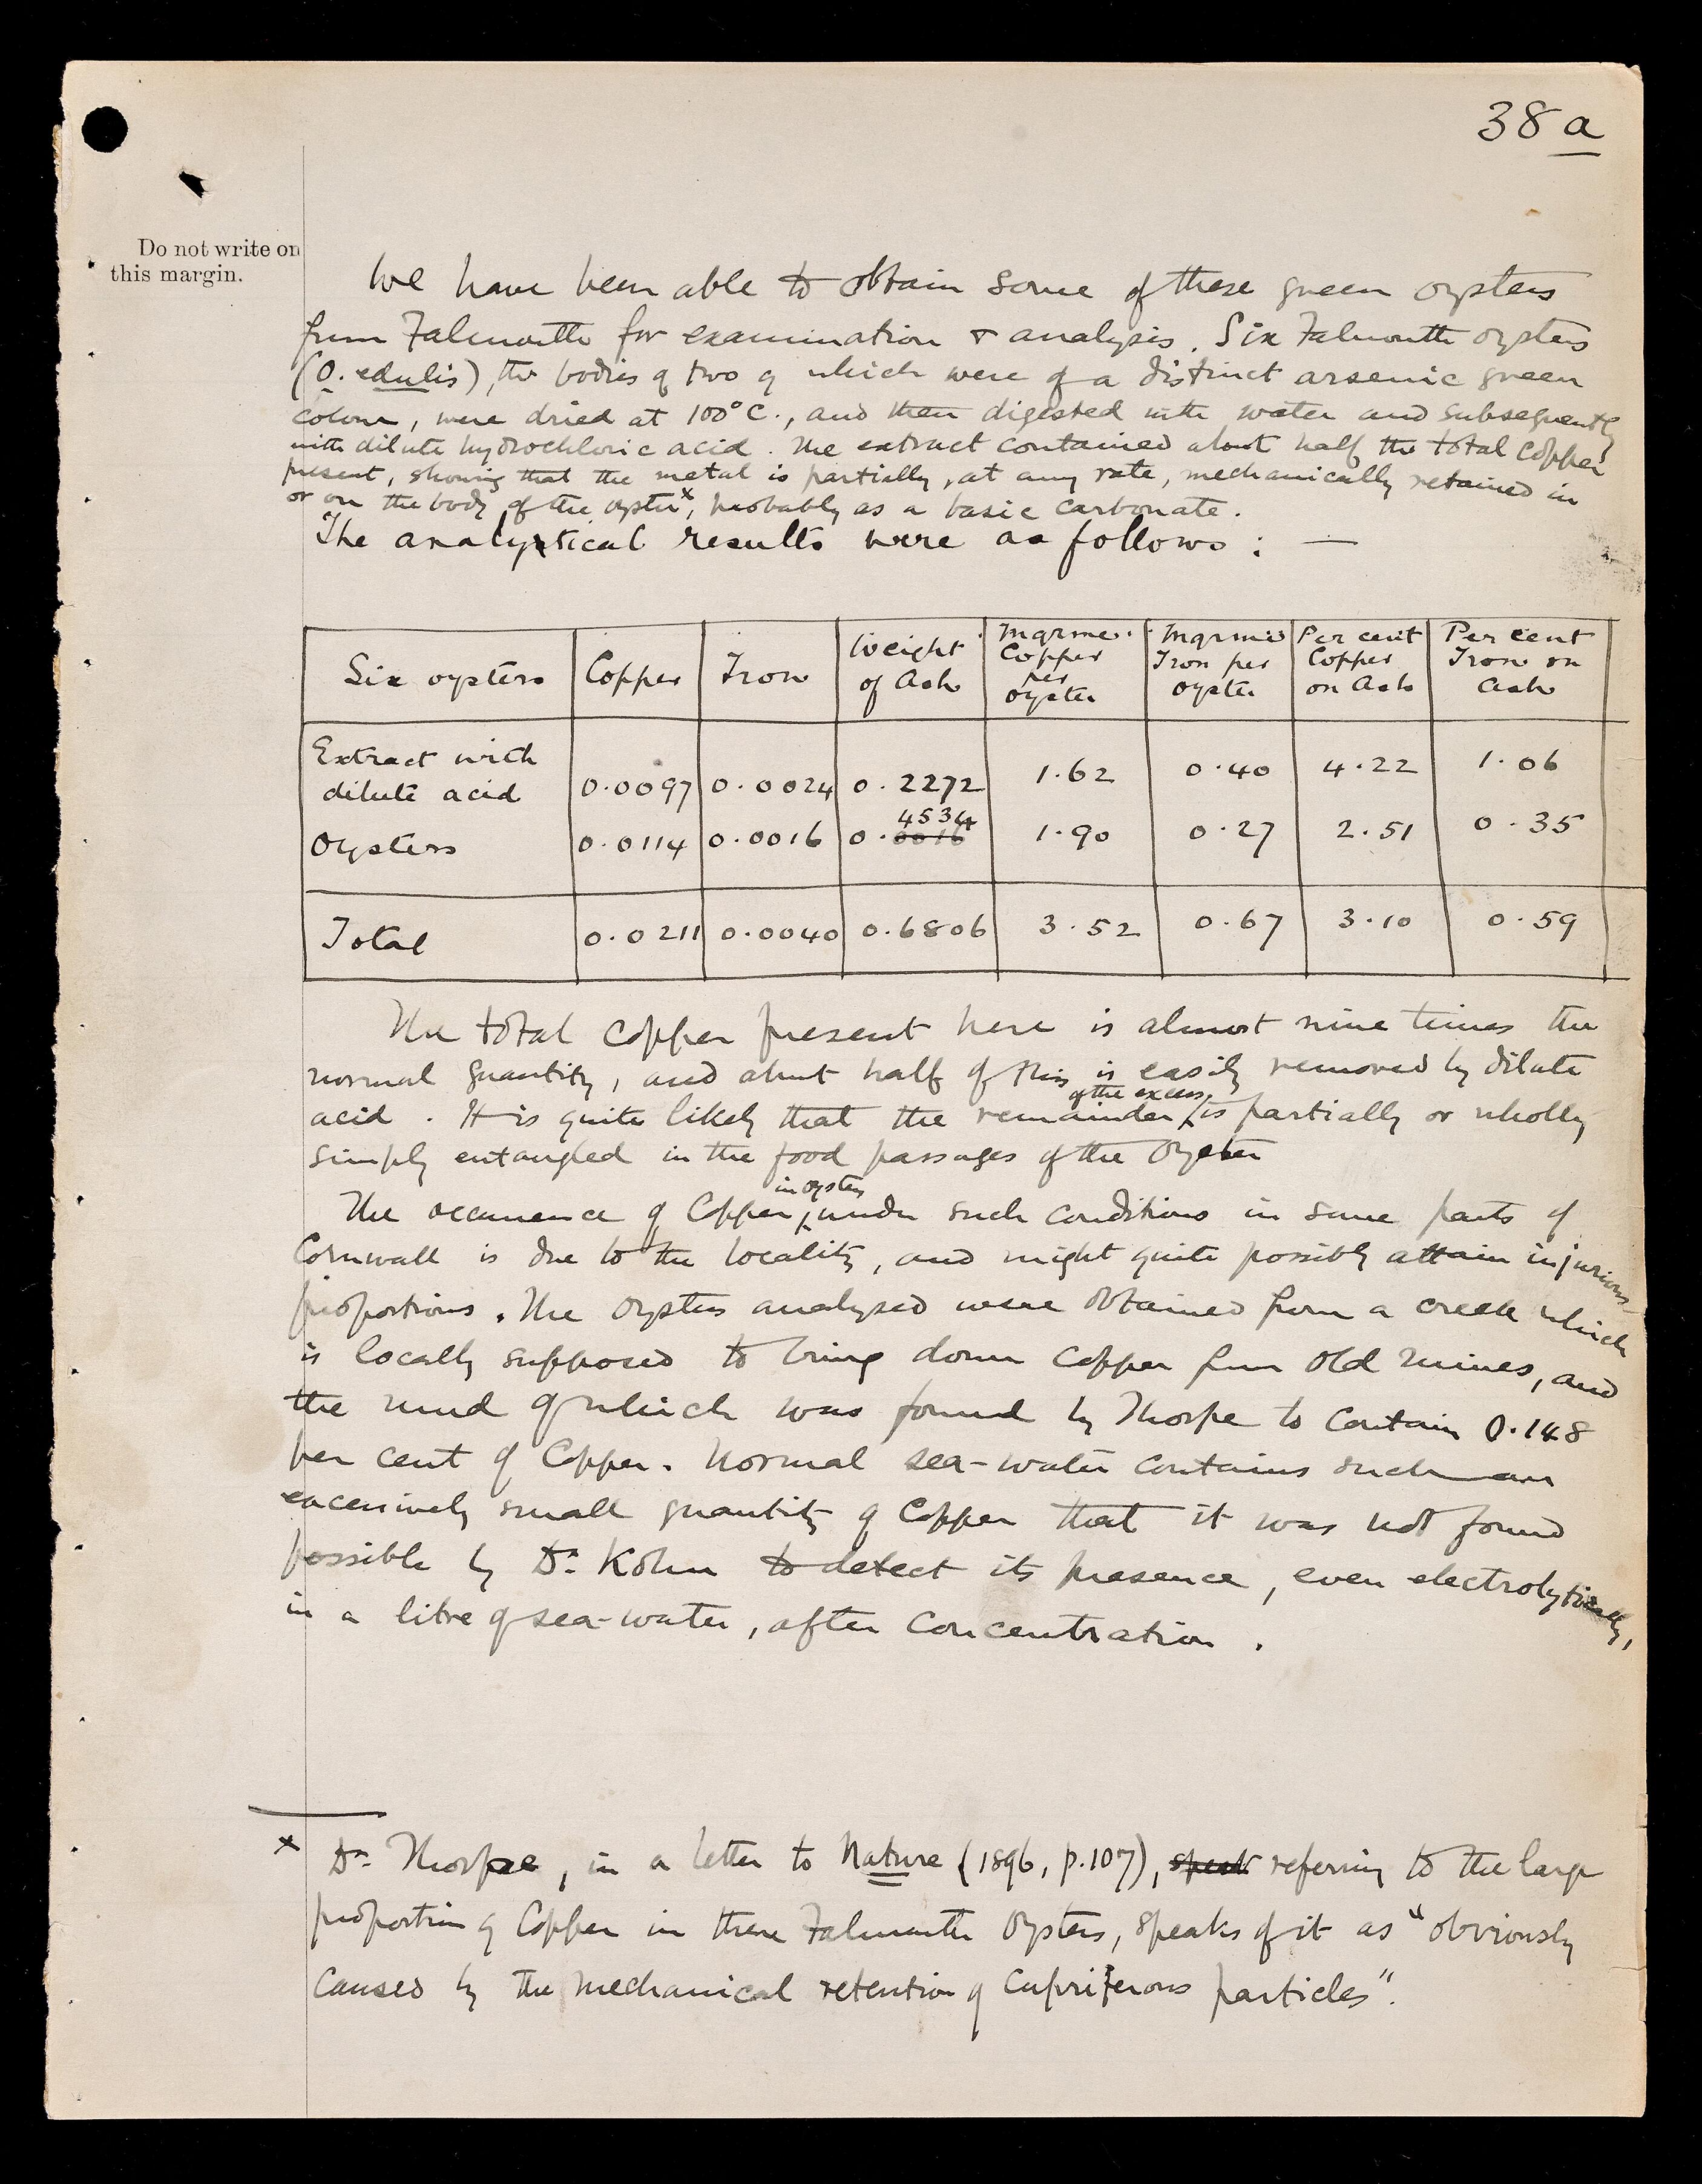 38 a
Do not write on
this margin.
We have been able to obtain some of these green oysters
from Falmouth for examination & analysis. Six Falmouth oysters
(O. edulis), the bodies of two of which were of a distinct arsenic green
colour, were dried at 100° C., and then digested with water and subsequently
with dilute hydrochloric acid. The extract contained about half the total copper
present, showing that the metal is partially, at any rate, mechanically retained in
or on the body of the oyster x, probably as a basic carbonate.
The analytical results were as follows: —
Six oysters | Copper | Iron | Weight of Ash | Mgrme. Copper per oyster | Mgrme Iron per oyster | Per cent Copper on Ash | Per cent Iron on Ash
Extract with dilute acid | 0.0097 | 0.0024 | 0.2272 | 1.62 | 0.40 | 4.22 | 1.06
Oysters | 0.0114 | 0.0016 | 0.0016 4534 | 1.90 | 0.27 | 2.51 | 0.35
Total | 0.0211 | 0.0040 | 0.6806 | 3.52 | 0.67 | 3.10 | 0.59
The total copper present here is almost nine times the
normal quantity, and about half of this is easily removed by dilute
acid. It is quite likely that the remainder of the excess, is partially or wholly
simply entangled in the food passages of the Oyster
The occurrence of Copper in oysters under such conditions in some parts of
Cornwall is due to the locality, and might quite possibly attain injurious
proportions. The oysters analysed were obtained from a creek which
is locally supposed to bring down copper from old mines, and
the mud of which was found by Thorpe to contain 0.148
per cent of Copper. Normal sea-water contains such an
excessively small quantity of Copper that it was not found
possible by Dr. Kohn to detect its presence, even electrolytically,
in a litre of sea-water, after concentration.
x Dr. Thorpe, in a letter to Nature (1896, p. 107), speak referring to the large
proportion of Copper in these Falmouth Oysters, speaks of it as "obviously
caused by the mechanical retention of cupriferous particles".